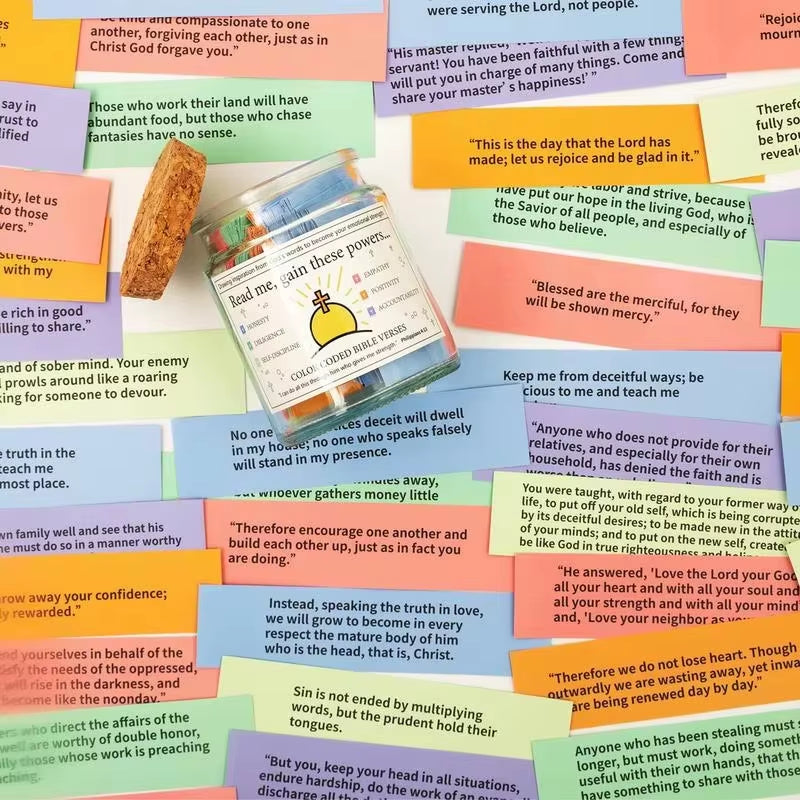 "Be kind and compassionate to one
another, forgiving each other, just as in
Christ God forgave you."
were serving the Lord, not people.
"Rejoi
mourn
"His master replied,
servant! You have been faithful with a few things
will put you in charge of many things. Come and
share your master's happiness!' "
say in
rust to
ified
Those who work their land will have
abundant food, but those who chase
fantasies have no sense.
"This is the day that the Lord has
made; let us rejoice and be glad in it."
Therefo
fully so
be brou
reveale
nity, let us
to those
vers."
strengthen
with my
labor and strive, because
have put our hope in the living God, who is
the Savior of all people, and especially of
those who believe.
"Blessed are the merciful, for they
will be shown mercy."
e rich in good
illing to share."
Drawing inspiration from God's words to become your emotional strength
Read me, gain these powers...
HONESTY
DILIGENCE
SELF-DISCIPLINE
EMPATHY
POSITIVITY
ACCOUNTABILITY
COLOR CODED BIBLE VERSES
"I can do all this through him who gives me strength." Philippians 4:13
and of sober mind. Your enemy
l prowls around like a roaring
king for someone to devour.
Keep me from deceitful ways; be
cious to me and teach me
No one
ices deceit will dwell
in my house; no one who speaks falsely
will stand in my presence.
"Anyone who does not provide for their
relatives, and especially for their own
household, has denied the faith and is
e truth in the
teach me
most place.
away,
but whoever gathers money little
You were taught, with regard to your former way o
life, to put off your old self, which is being corrupte
by its deceitful desires; to be made new in the attitu
of your minds; and to put on the new self, create
be like God in true righteousness and
wn family well and see that his
he must do so in a manner worthy
"Therefore encourage one another and
build each other up, just as in fact you
are doing."
row away your confidence;
ly rewarded."
"He answered, 'Love the Lord your God
all your heart and with all your soul and
all your strength and with all your mind
and, 'Love your neighbor as
Instead, speaking the truth in love,
we will grow to become in every
respect the mature body of him
who is the head, that is, Christ.
nd yourselves in behalf of the
isfy the needs of the oppressed,
will rise in the darkness, and
become like the noonday."
"Therefore we do not lose heart. Though
outwardly we are wasting away, yet inwa
are being renewed day by day."
Sin is not ended by multiplying
words, but the prudent hold their
tongues.
ers who direct the affairs of the
well are worthy of double honor,
lly those whose work is preaching
aching.
"But you, keep your head in all situations,
endure hardship, do the work of an
discharge all the
Anyone who has been stealing must s
longer, but must work, doing someth
useful with their own hands, that th
have something to share with those